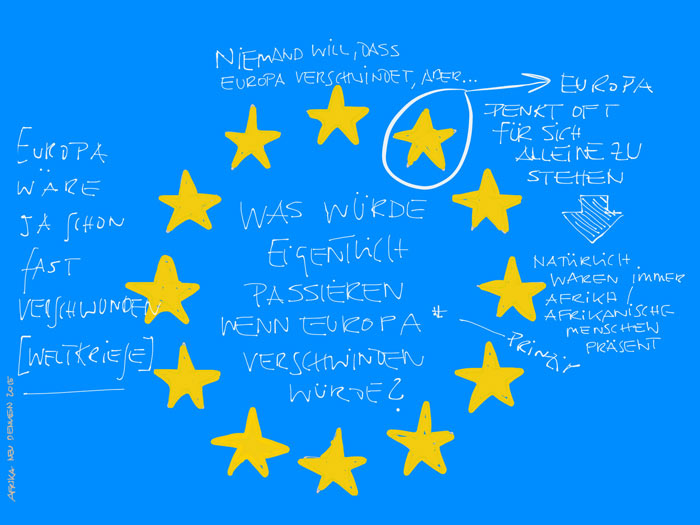 NIEMAND WILL, DASS
EUROPA VERSCHWINDET, ABER...
EUROPA
DENKT OFT
FÜR SICH
ALLEINE ZU
STEHEN
NATÜRLICH
WAREN IMMER
AFRIKA /
AFRIKANISCHE
MENSCHEN
PRÄSENT
EUROPA
WÄRE
JA SCHON
FAST
VERSCHWUNDEN
[WELTKRIEGE]
WAS WÜRDE
EIGENTLICH
PASSIEREN
WENN EUROPA *
VERSCHWINDEN
WÜRDE?
PRINZIP
AFRIKA NEU DENKEN 2015